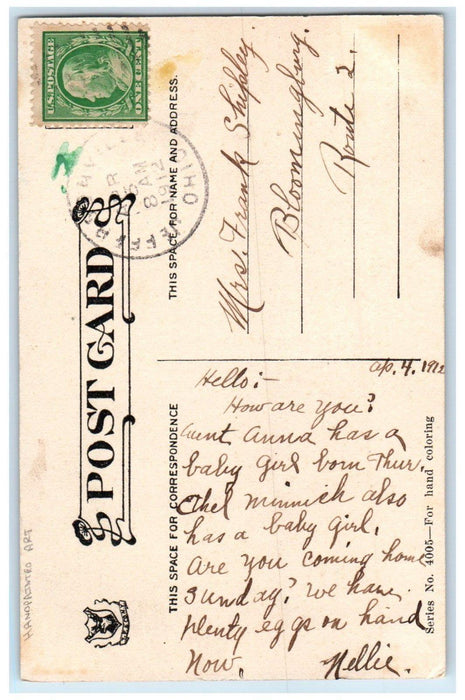 U.S. POSTAGE
ONE CENT
APR
5
8 AM
1912
OHIO
POST CARD
THIS SPACE FOR NAME AND ADDRESS.
Mrs. Frank Shipley.
Bloomingburg.
Route 2.
THIS SPACE FOR CORRESPONDENCE
Ap. 4. 1912
Hello:-
How are you?
Aunt Anna has a
baby girl born Thur.
Ethel Minnich also
has a baby girl.
Are you coming home
Sunday? We have
plenty eggs on hand
now. Nellie.
Series No. 4005—For hand coloring
HANDPAINTED ART